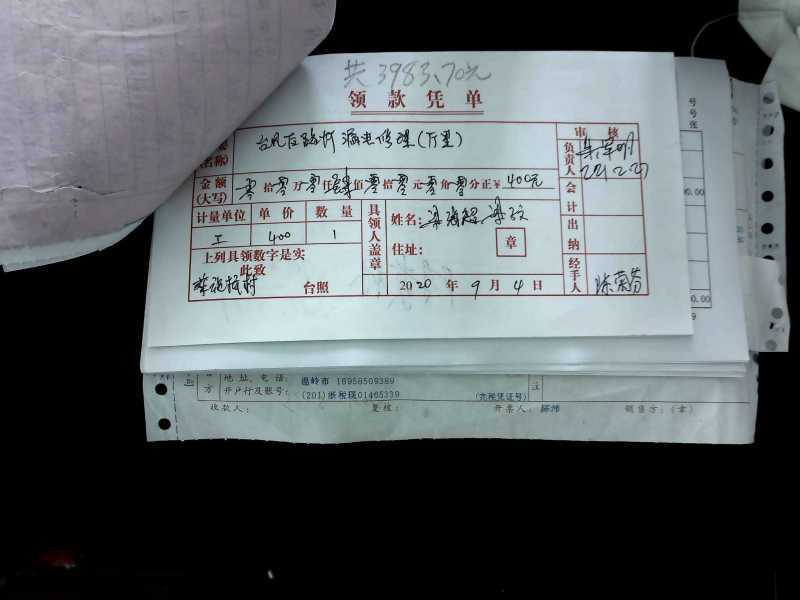 共3983.70元
领款凭单
(名称) 台风后路灯漏电修理(万里) 审核
负责人
金额(大写) 零拾零万零仟肆佰零拾零元零角零分正¥ 400元 会计
计量单位 单价 数量 具领人盖章 姓名:
工 400 1 住址: 章 出纳
上列具领数字是实
此致
台照 2020年9月4日 经手人 陈菊芬
号
号
张
00.00
00.00
9
方 地址、电话: 温岭市 16958509389 注
开户行及账号: (201)浙税现01465339 (完税凭证号)
收款人: 复核: 开票人: 销售方:(章)